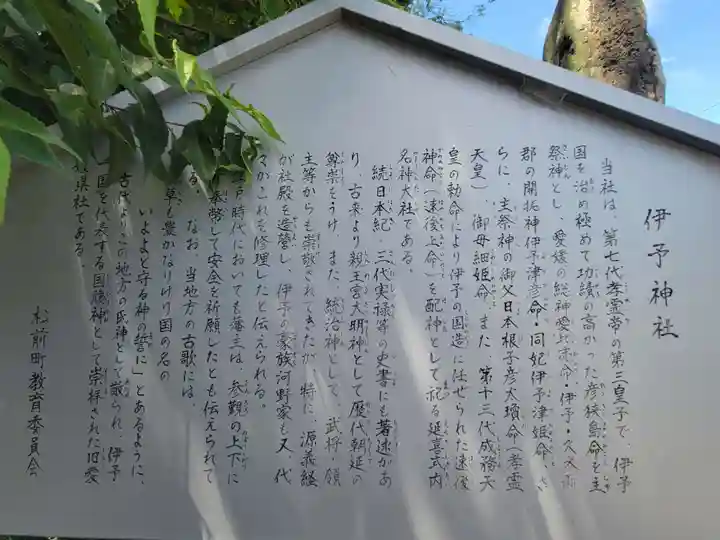 伊予神社
当社は、第七代孝霊帝の第三皇子で、伊予
国を治め極めて功績の高かった彦狭島命を主
祭神とし、愛媛の総神愛比売命・伊予・久米両
郡の開拓神伊予津彦命・同妃伊予津姫命、さ
らに、主祭神の御父日本根子彦太瓊命(孝霊
天皇)、御母細姫命、また、第十三代成務天
皇の勅命により伊予の国造に任せられた速後
神命(速後上命)を配神として祀る延喜式内
名神大社である。
続日本紀、三代実禄等の史書にも著述があ
り、古来より親王宮大明神として歴代朝廷の
尊崇をうけ、また、統治神として、武将、領
主等からも崇敬されてきたが、特に、源義経
が社殿を造営し、伊予の豪族河野家も又、代
々がこれを修理したと伝えられる。
戸時代においても藩主は、参覲の上下に
奉幣して安全を祈願したとも伝えられて
なお、当地方の古歌には、
草も豊かなりけり国の名の
いよよと守る神の誓に」とあるように、
古代よりこの地方の氏神として厳られ、伊予
一国を代表する国鴻神として崇拝された旧愛
県社である。
松前町教育委員会